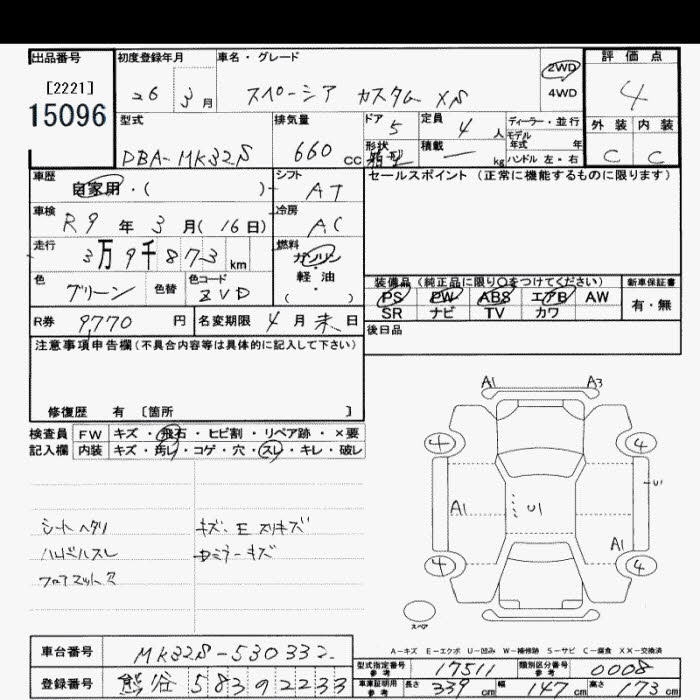 出品番号 初度登録年月 車名・グレード 評価点
[2221] 26 3月 スペーシア カスタム XS 2WD 4
15096 4WD
型式 排気量 ドア 定員 ディーラー・並行 外装 内装
5 4人 モデル年式 年
DBA-MK32S 660cc 形状 箱型 積載 ー kg ハンドル 左・右 C C
車歴 シフト セールスポイント (正常に機能するものに限ります)
自家用・( ) AT
車検 冷房
R9年3月(16日) AC
走行 燃料
3万9千873km ガソリン・軽油・( )
色 色替 色コード 装備品(純正品に限り○をつけてください) 新車保証書
グリーン ZVD PS PW ABS エアB AW 有・無
SR ナビ TV カワ
R券 9,770円 名変期限 4月末日 後日品
注意事項申告欄(不具合内容等は具体的に記入して下さい)
修復歴 有 [箇所 ]
検査員 FW キズ・飛石・ヒビ割・リペア跡・×要
記入欄 内装 キズ・汚レ・コゲ・穴・スレ・キレ・破レ
A1 A3
4 4
U1
A1 U1
A1
4 4
シートヘタリ キズ、E スリキズ
ハンドルスレ
フロアマットス
スペア
A-キズ E-エクボ U-凹み W-補修跡 S-サビ C-腐食 XX-交換済
車台番号 MK32S-530332
型式指定番号 参考 17511 類別区分番号 参考 0008
登録番号 熊谷 583の2233
車庫証明用 参考 長さ 339cm 幅 147cm 高さ 173cm